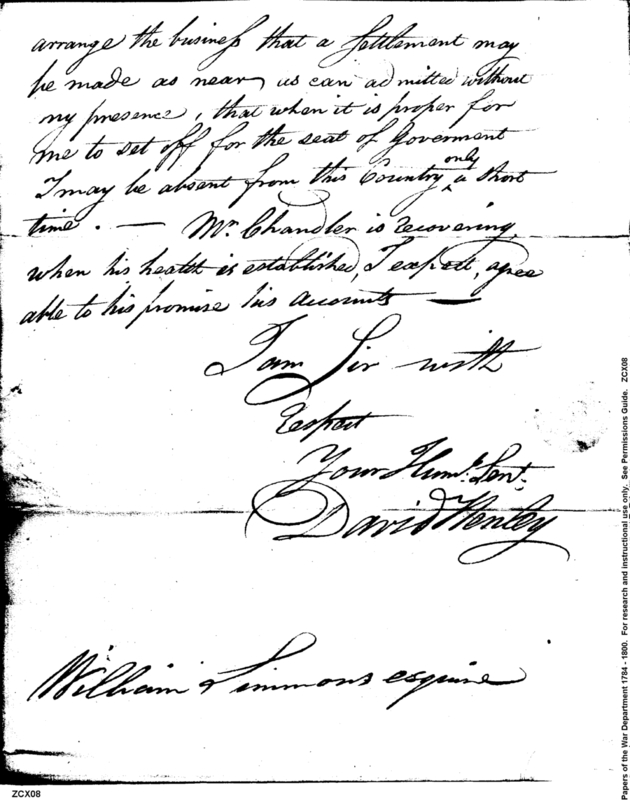 arrange the business that a settlement may
be made as near as can admitted without
my presence, that when it is proper for
me to set off for the seat of Goverment
I may be absent from this Country only a short
time. — Mr. Chandler is recovering,
when his health is established, I expect, agree
able to his promise his accounts —
I am Sir with
respect
Your Huml. Servt.
David Henley
William Simmons esquire
ZCX08
Papers of the War Department 1784 - 1800. For research and instructional use only. See Permissions Guide. ZCX08